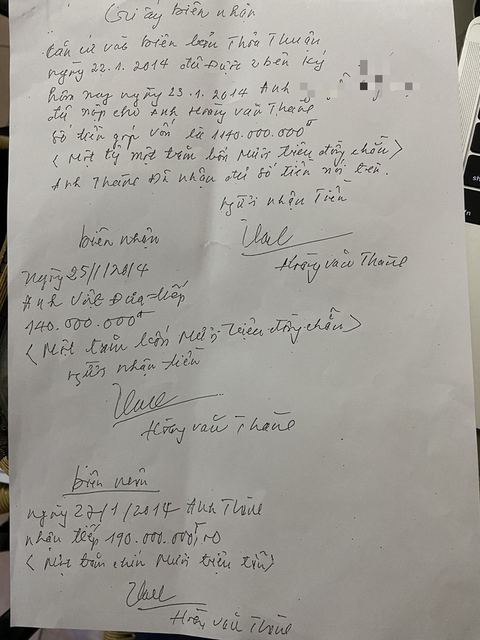 Giấy biên nhận
Căn cứ vào biên bản Thỏa Thuận
ngày 22.1.2014 đã Được 2 bên ký
hôm nay ngày 23.1.2014 Anh
đã nộp cho Anh Hoàng văn Thành
Số tiền góp vốn là 1140.000.000đ
< Một tỷ một trăm bốn Mươi triệu đồng chẵn >
Anh Thành Đã nhận đủ số tiền nói trên.
người nhận Tiền
Hoàng văn Thành
biên nhận
Ngày 25/1/2014
Anh Việt Đưa tiếp
140.000.000đ
< Một trăm bốn Mươi triệu đồng chẵn >
người nhận tiền
Hoàng văn Thành
biên nhận
ngày 27/1/2014 Anh Thành
nhận tiếp 190.000.000,00
< Một trăm chín Mươi triệu >
Hoàng văn Thành